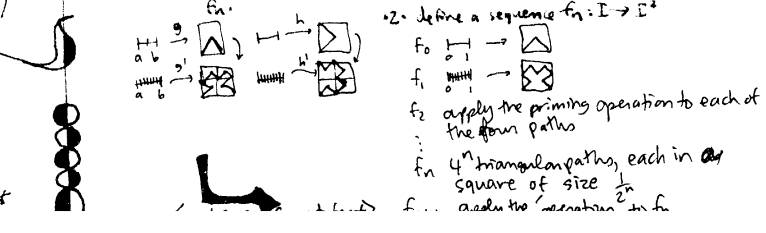 fn.
·2· define a sequence fn: I → I²
g
h
a b
g'
h'
a b
f₀
0 1
f₁
0 1
f₂ apply the priming operation to each of
the four paths
⋮
fn 4ⁿ triangular paths, each in a
square of size 1/2ⁿ
apply the operation to fn